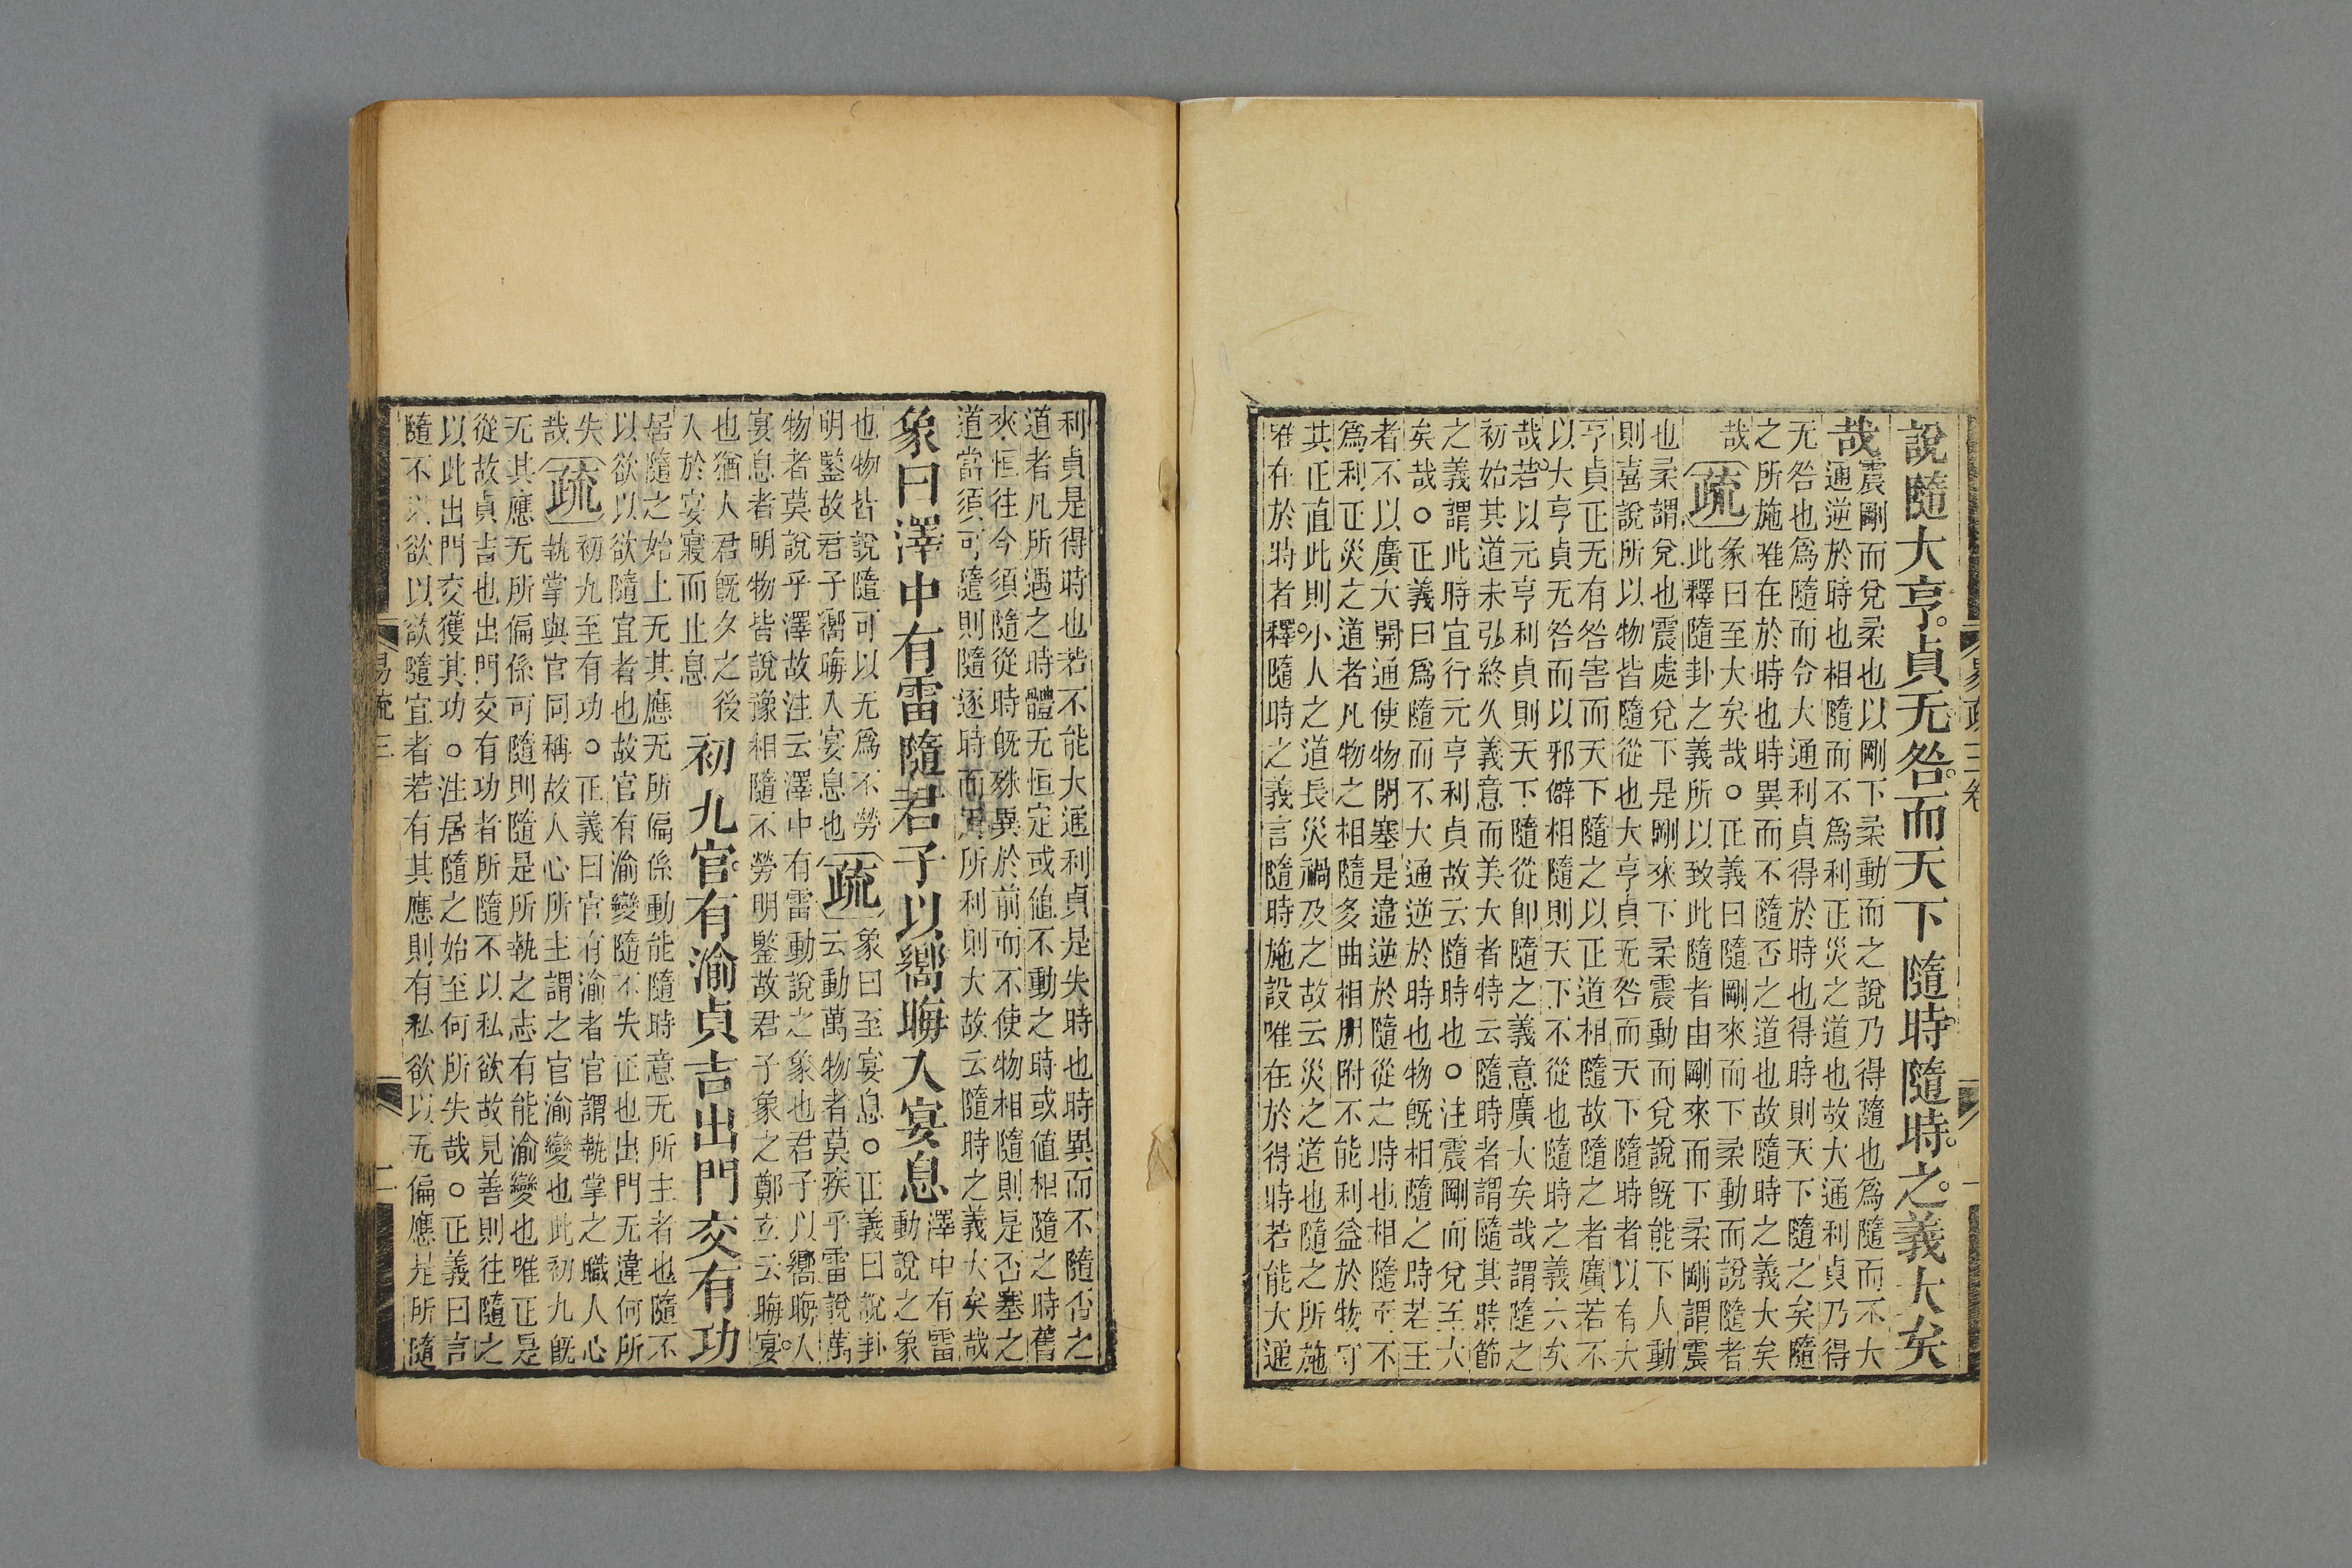 易疏三卷　一
說隨大亨貞无咎而天下隨時隨時之義大矣
哉
震剛而兌柔也以剛下柔動而之說乃得隨也爲隨而不大
通逆於時也相隨而不爲利正災之道也故大通利貞乃得
无咎也爲隨而令大通利貞得於時也得時則天下隨之矣隨
之所施唯在於時也時異而不隨否之道也故隨時之義大矣
哉疏彖曰至大矣哉○正義曰隨剛來而下柔動而說隨者
此釋隨卦之義所以致此隨者由剛來而下柔剛謂震
也柔謂兌也震處兌下是剛來下柔震動而兌說旣能下人動
則喜說所以物皆隨從也大亨貞无咎而天下隨時者以有大
亨貞正无有咎害而天下隨之以正道相隨故隨之者廣若不
以大亨貞无咎而以邪僻相隨則天下不從也隨時之義大矣
哉若以元亨利貞則天下隨從卽隨之義意廣大矣哉謂隨之
初始其道未弘終久義意而美大者特云隨時者謂隨其時節
之義謂此時宜行元亨利貞故云隨時也○注震剛而兌至大
矣哉○正義曰爲隨而不大通逆於時也物旣相隨之時若王
者不以廣大開通使物閉塞是違逆於隨從之時也相隨而不
爲利正災之道者凡物之相隨多曲相朋附不能利益於物守
其正直此則小人之道長災禍及之故云災之道也隨之所施
唯在於時者釋隨時之義言隨時施設唯在於得時若能大通
利貞是得時也若不能大通利貞是失時也時異而不隨否之
道者凡所遇之時體无恒定或値不動之時或值相隨之時舊
來恒往今須隨從時旣殊異於前而不使物相隨則是否塞之
道當須可隨則隨逐時而所利則大故云隨時之義大矣哉
象曰澤中有雷隨君子以嚮晦入宴息
澤中有雷
動說之象
也物皆說隨可以无爲不勞
明鑒故君子嚮晦入宴息也
疏
象曰至宴息○正義曰說卦
云動萬物者莫疾乎雷說萬
物者莫說乎澤故注云澤中有雷動說之象也君子以嚮晦入
宴息者明物皆說豫相隨不勞明鑒故君子象之鄭玄云晦宴
也猶人君旣夕之後
入於宴寢而止息
初九官有渝貞吉出門交有功
居隨之始上无其應无所偏係動能隨時意无所主者也隨不
以欲以欲隨宜者也故官有渝變隨不失正也出門无違何所
失
哉
疏
初九至有功○正義曰官有渝者官謂執掌之職人心
執掌與官同稱故人心所主謂之官渝變也此初九旣
无其應无所偏係可隨則隨是所執之志有能渝變也唯正是
從故貞吉也出門交有功者所隨不以私欲故見善則往隨之
以此出門交獲其功○注居隨之始至何所失哉○正義曰言
隨不以欲以欲隨宜者若有其應則有私欲以无偏應是所隨
易疏三　二